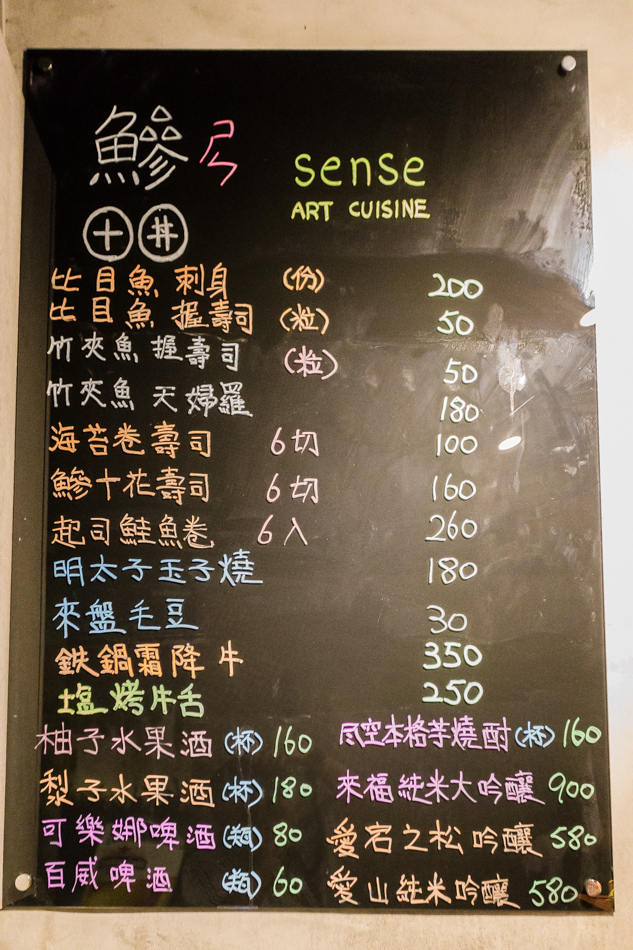 鰺 sense
ART CUISINE
十 丼
比目魚 刺身 (份) 200
比目魚 握壽司 (粒) 50
竹夾魚 握壽司 (粒) 50
竹夾魚 天婦羅 180
海苔卷壽司 6切 100
鰺十花壽司 6切 160
起司鮭魚卷 6入 260
明太子玉子燒 180
來盤毛豆 30
鉄鍋霜降牛 350
塩烤牛舌 250
柚子水果酒 (杯) 160
梨子水果酒 (杯) 180
可樂娜啤酒 (瓶) 80
百威啤酒 (瓶) 60
尽空本格芋燒酎 (杯) 160
來福純米大吟釀 900
愛宕之松吟釀 580
愛山純米吟釀 580